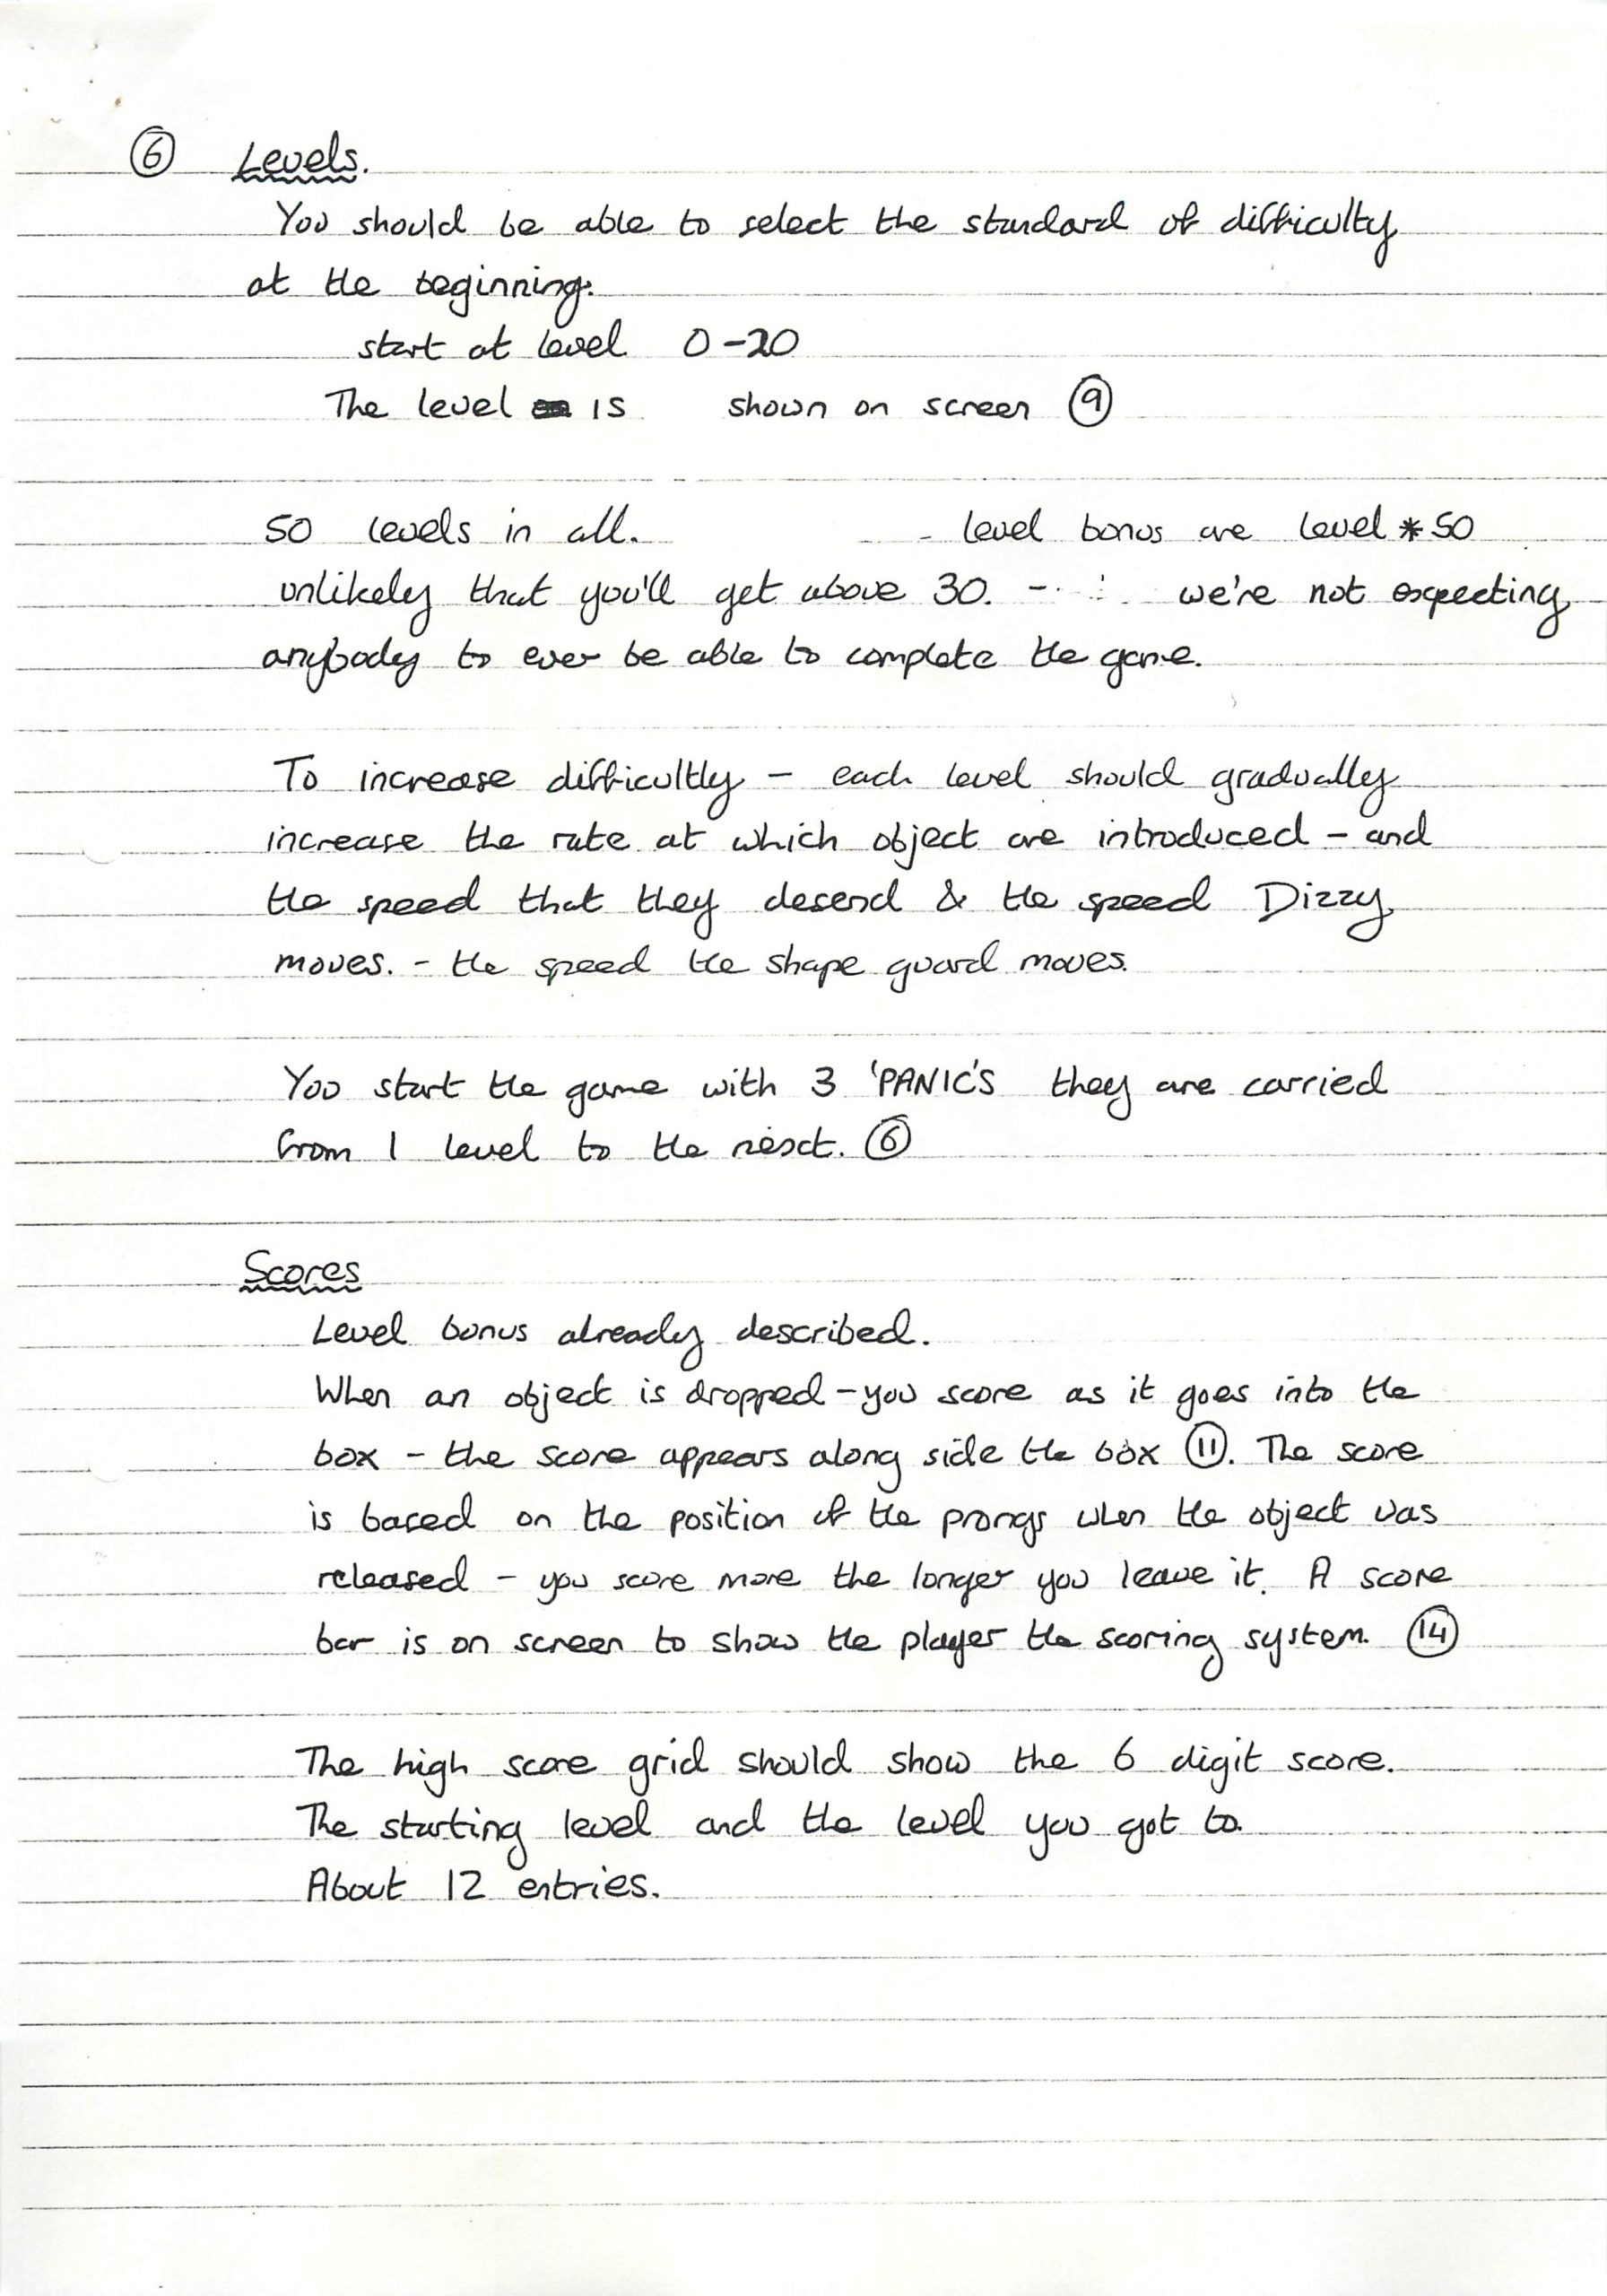 ⑥ Levels.
You should be able to select the standard of difficulty
at the beginning.
start at level 0-20
The level is shown on screen ⑨
50 levels in all. level bonus are level * 50
unlikely that you'll get above 30. - we're not expecting
anybody to ever be able to complete the game.
To increase difficultly - each level should gradually
increase the rate at which object are introduced - and
the speed that they desend & the speed Dizzy
moves. - the speed the shape guard moves.
You start the game with 3 'PANIC'S they are carried
from 1 level to the next. ⑥
Scores
Level bonus already described.
When an object is dropped - you score as it goes into the
box - the score appears along side the box ⑪. The score
is based on the position of the prongs when the object was
released - you score more the longer you leave it. A score
bar is on screen to show the player the scoring system. ⑭
The high score grid should show the 6 digit score.
The starting level and the level you got to.
About 12 entries.